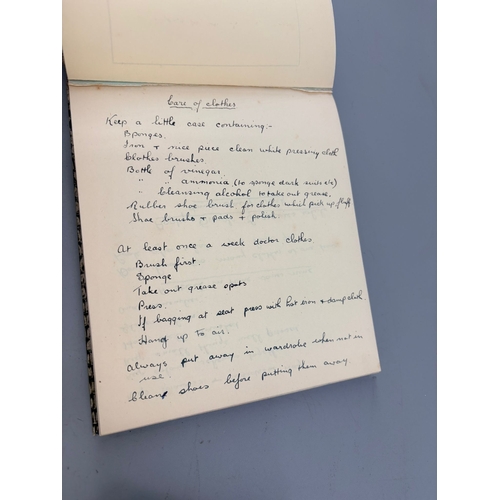 Care of clothes
Keep a little case containing:-
Sponges.
Iron + nice piece clean white pressing cloth
Clothes brushes.
Bottle of vinegar.
" " ammonia (to sponge dark suits etc)
" bleansing alcohol to take out grease.
Rubber shoe brush for clothes which pick up fluff
Shoe brushes + pads + polish.
At least once a week doctor clothes
Brush first.
Sponge
Take out grease spots
Press.
If bagging at seat press with hot iron + damp cloth.
Hang up to air.
Always put away in wardrobe when not in
use.
Clean shoes before putting them away.